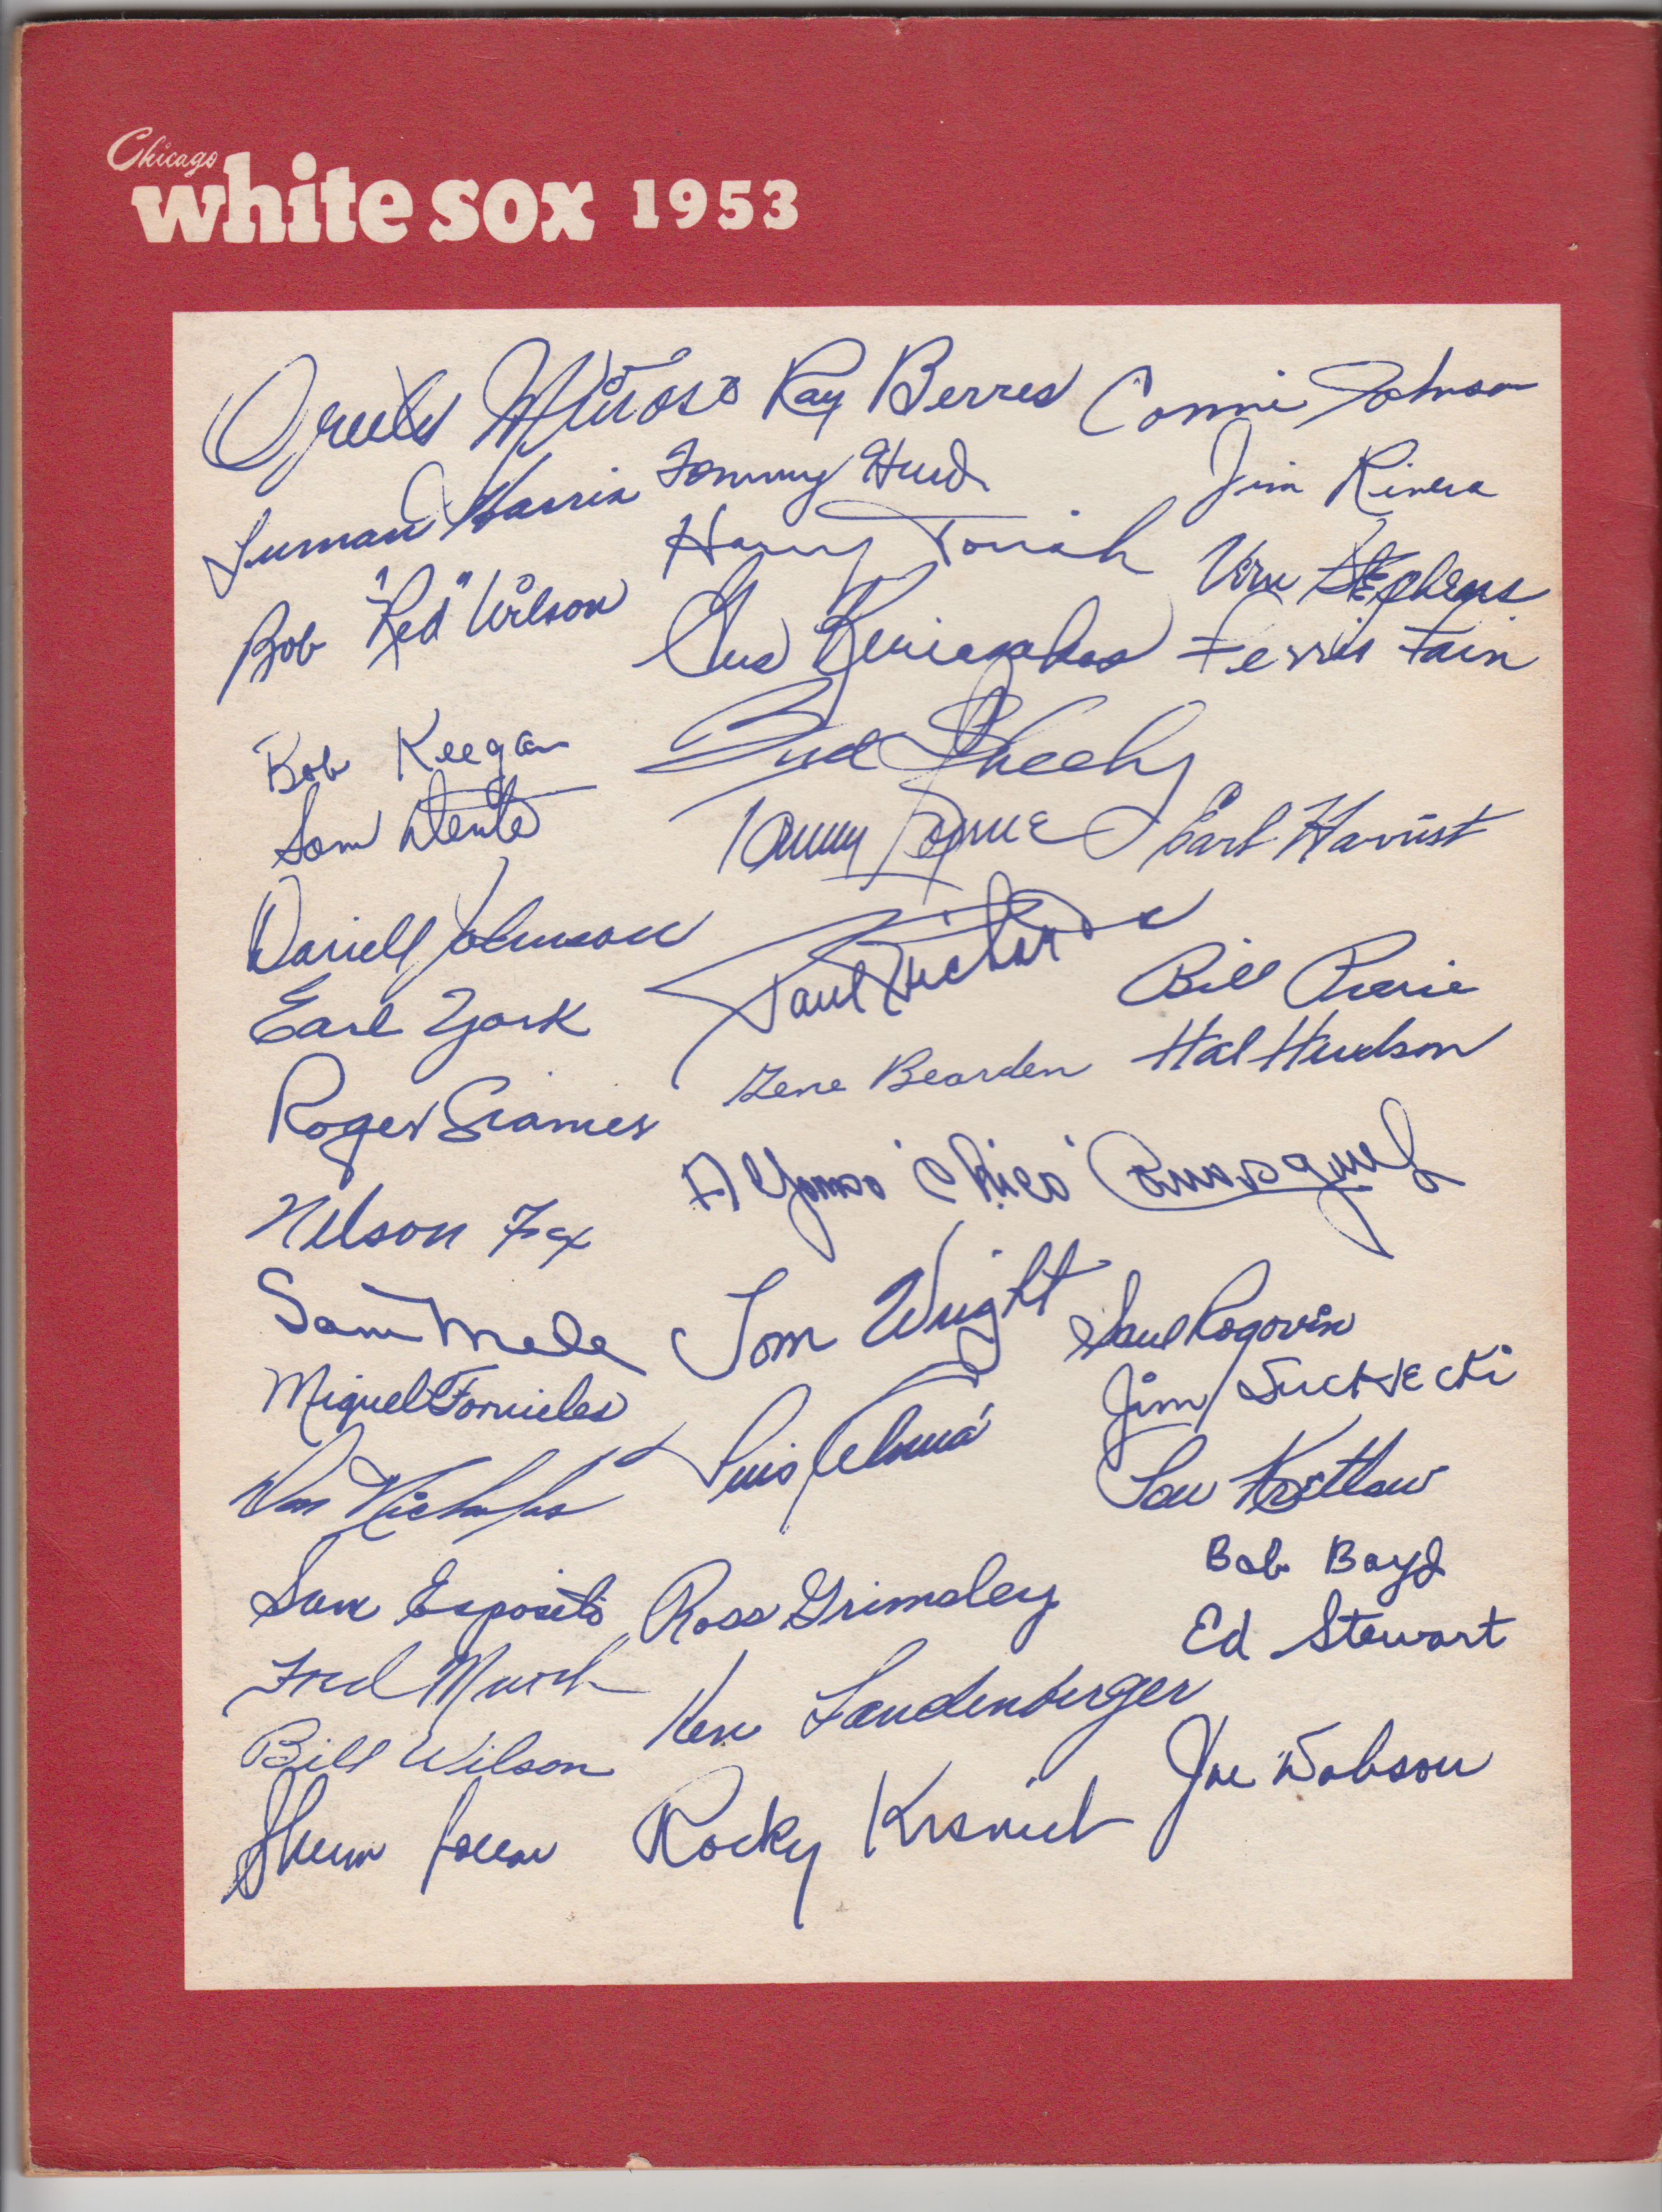 Chicago
white sox 1953
Orestes Miñoso Ray Berres Connie Johnson
Luman Harris Tommy Hurd Jim Rivera
Harry Dorish Vern Stephens
Bob "Red" Wilson Gus Keriazakos Ferris Fain
Bob Keegan Bud Sheely
Sam Dente Tommy Byrne Earl Harrist
Darrell Johnson Paul Richards
Earl York Bill Pierce
Gene Bearden Hal Hudson
Roger Grames
Alfonso 'Chico' Carrasquel
Nelson Fox
Tom Wright Saul Rogovin
Sam Mele
Miguel Fornieles Jim Suchecki
Luis Alomá Lou Kretlow
Don Nicholas
Bob Boyd
Sam Esposito Ross Grimsley Ed Stewart
Fred Marsh Ken Landenberger
Bill Wilson Joe Dobson
Sherm Lollar Rocky Krsnich